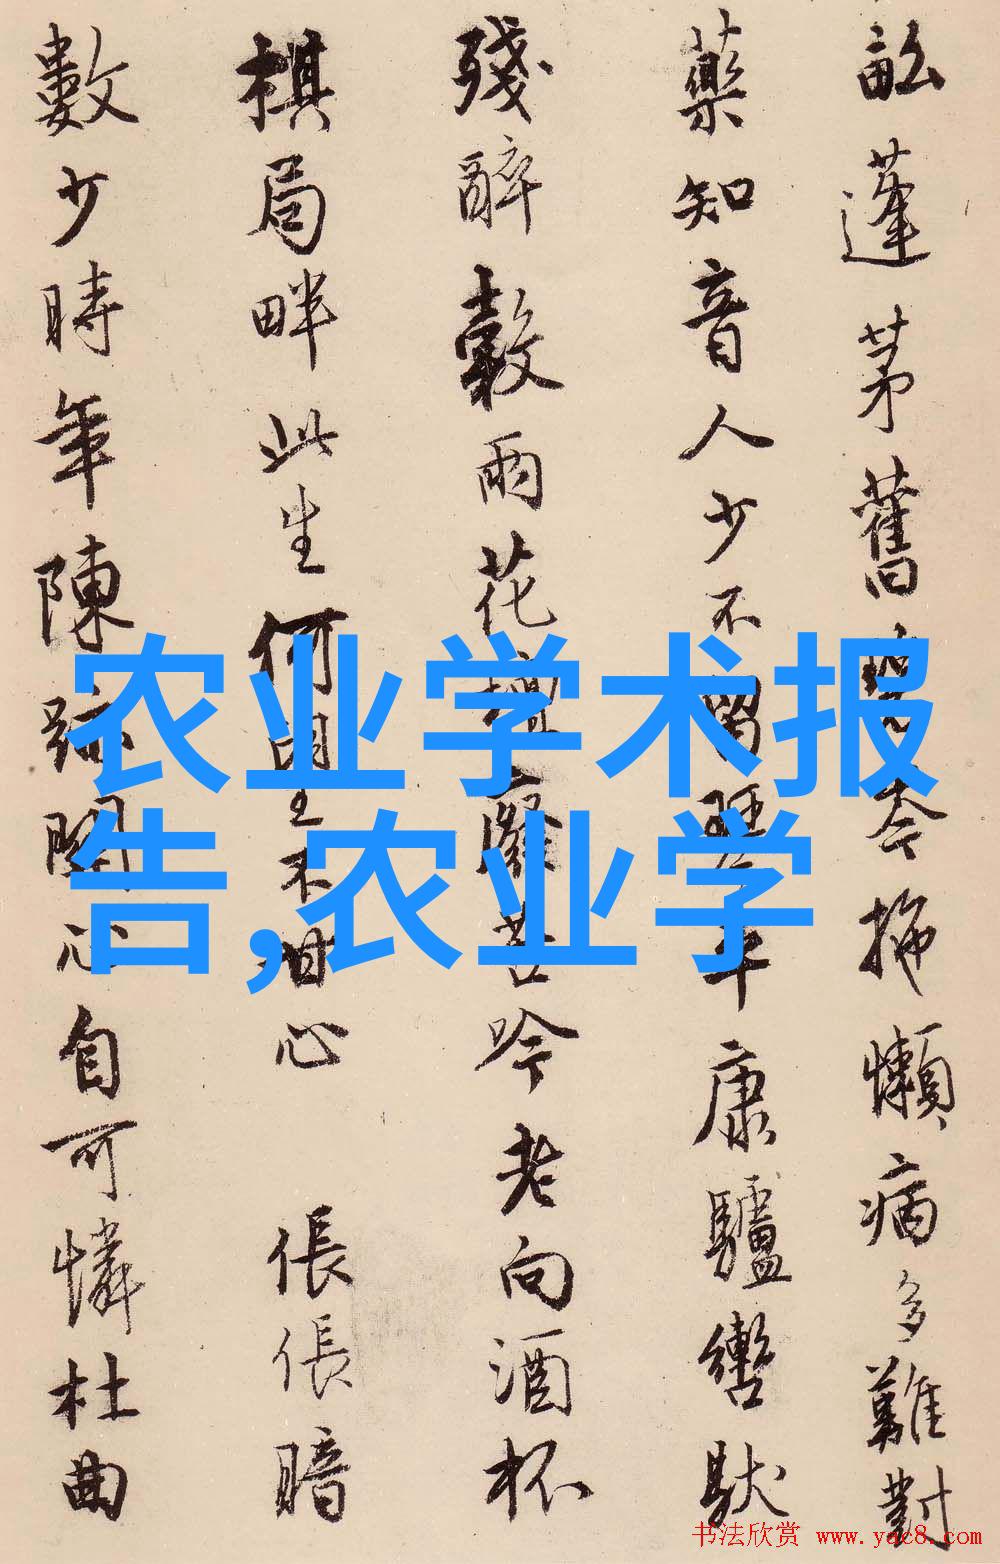 畝蓬茅舊今拖懶病多難對
藥知音人少不留康驢轡馱
殘醉穀雨花苦吟老向酒杯
棋局畔此生何不甘心 倀倀暗
數少時年陳跡關心自可憐杜曲
农业学术报
告,农业学
书法欣赏 www.yac8.com